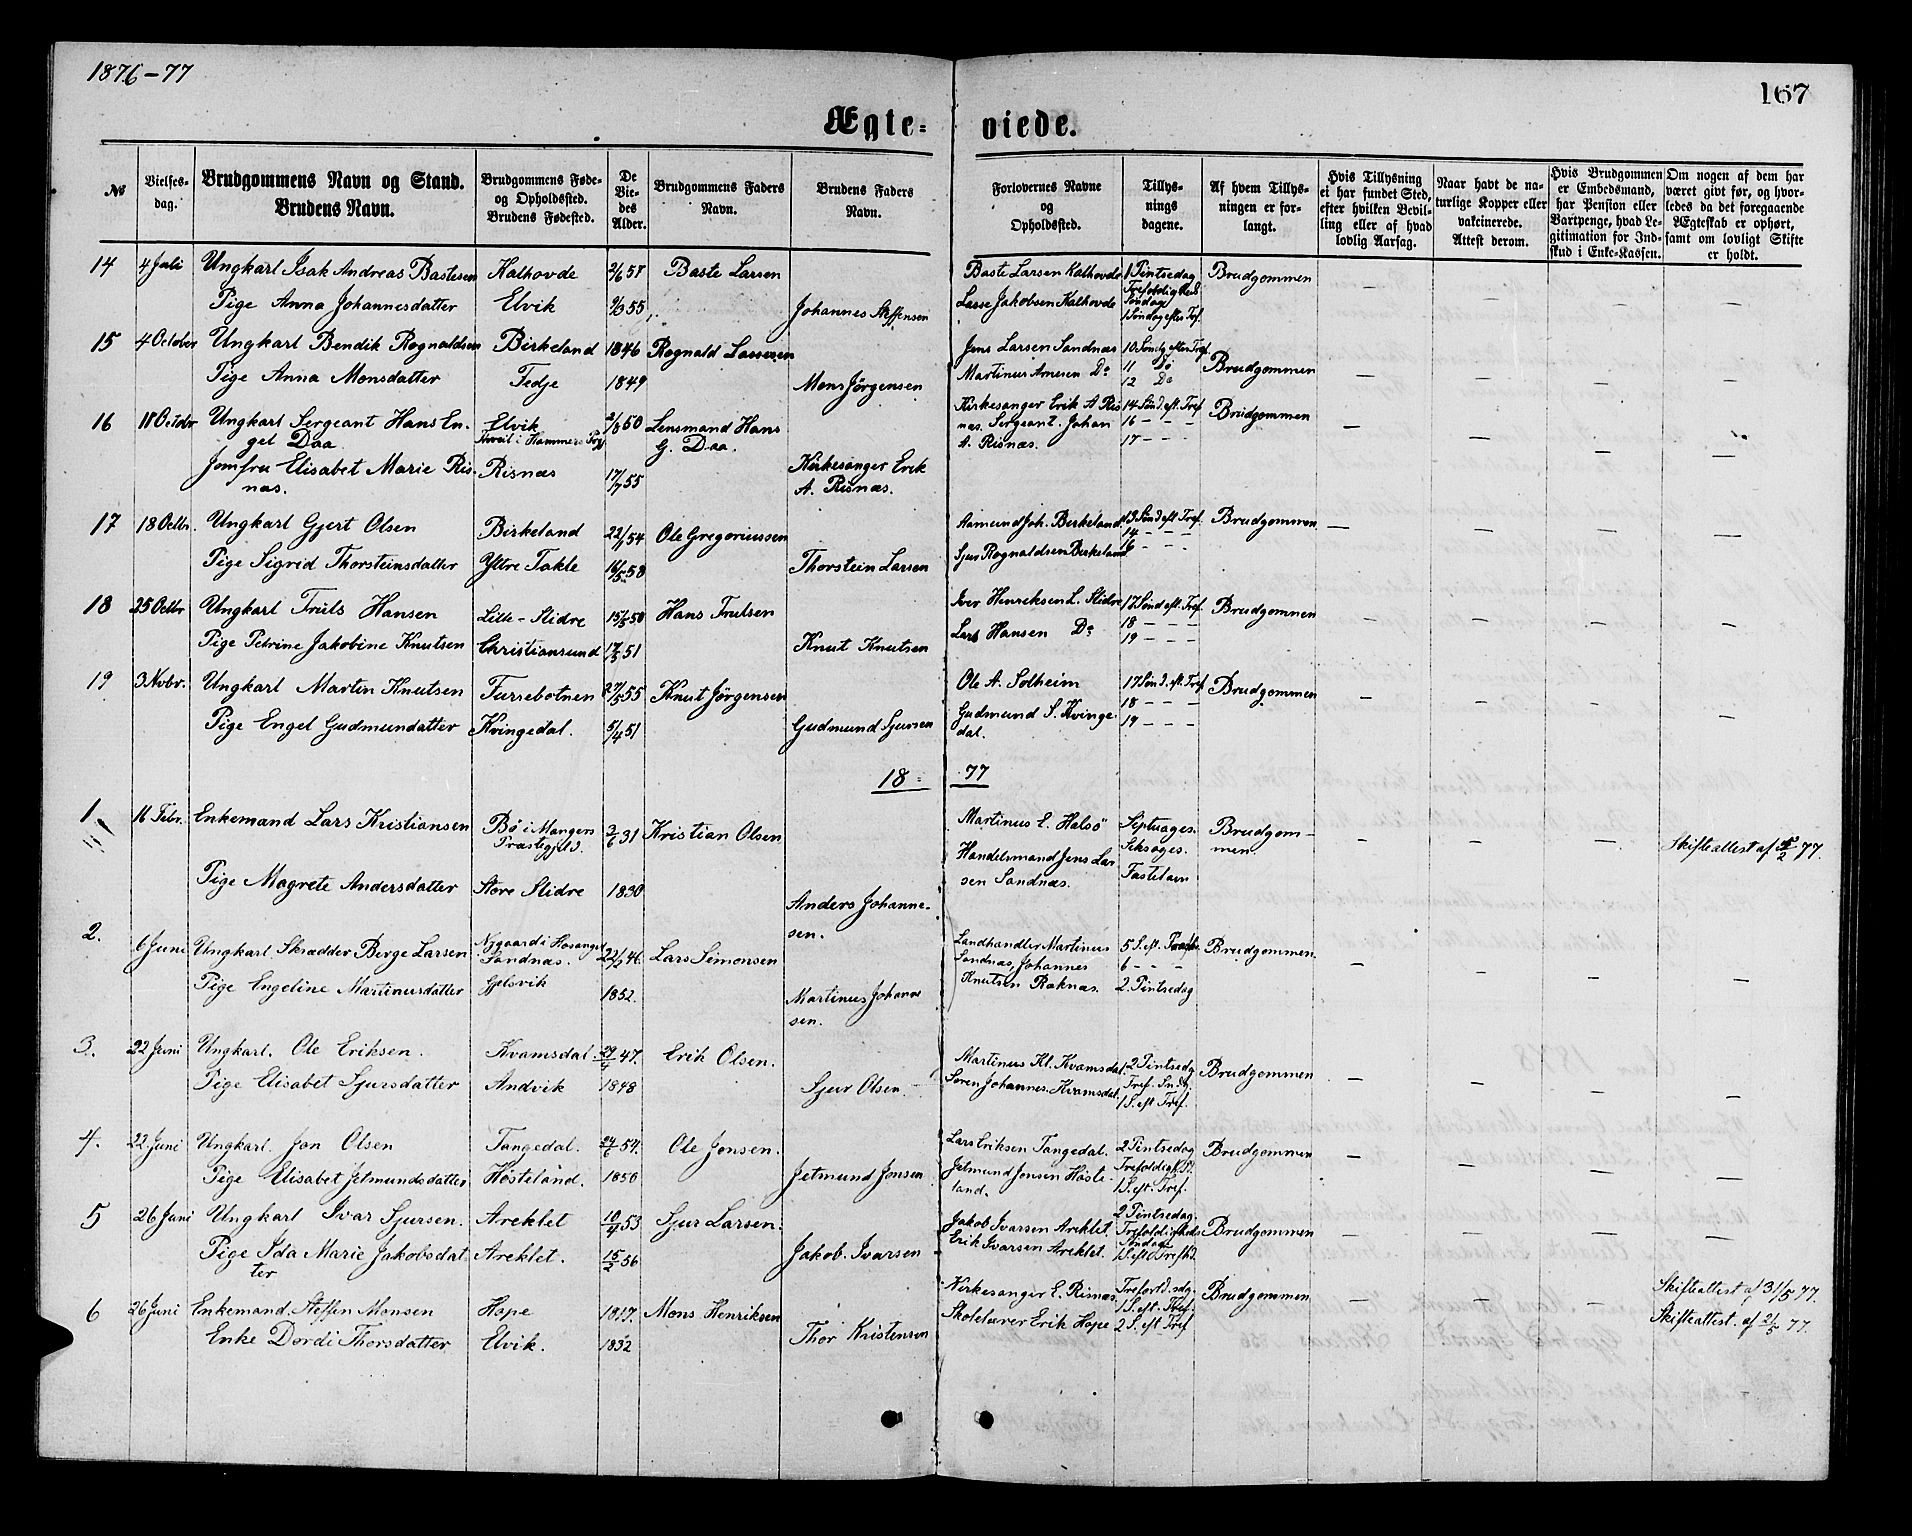 1876-77
167
Ægte= viede.
№ | Vielses-dag. | Brudgommens Navn og Stand. Brudens Navn. | Brudgommens Føde- og Opholdssted. Brudens Fødested. | De Vie-des Alder. | Brudgommens Faders Navn. | Brudens Faders Navn. | Forlovernes Navne og Opholdssted. | Tillys-nings dagene. | Af hvem Tillys-ningen er for-langt. | Hvis Tillysning ei har fundet Sted, efter hvilken Bevil-ling eller af hvad lovlig Aarsag. | Naar havt de na-turlige Kopper eller vakcinerede. Attest derom. | Hvis Brudgommen er Embedsmand, har Pension eller Vartpenge, hvad Le-gitimation for Ind-skud i Enke-Kassen. | Om nogen af dem har været givt før, og hvor-ledes da det foregaaende Ægteskab er ophørt, samt om lovligt Skifte er holdt.
14 | 4 Juli | Ungkarl Isak Andreas Bastesen | Kalhovde | Baste Larsen | Baste Larsen Kalhovde | 1 Pintsedag | Brudgommen
Pige Anna Johannesdatter | Elvik | 9/3 55 | Johannes Steffensen | Lasse Jakobsen Kalhovde | Trefoldigheds Søndag
1 Søndag efter Tref.
15 | 4 October | Ungkarl Bendik Rognaldsen | Birkeland | 1846 | Rognald Larsen | Jens Larsen Sandnæs | 10 Søndg efter Tref. | Brudgommen
Pige Anna Monsdatter | Fedje | 1849 | Mons Jørgensen | Martinus Arnesen Do | 11 Do
12 Do
16 | 11 Octobr | Ungkarl Sergeant Hans En- | Elvik | 2/8 50 | Lensmand Hans | Kirkesanger Erik A Ris | 14 Sønd. eft. Tref | Brudgommen
gel Daa | i Hammers Prg | G. Daa. | næs. Sergeant Johan | 16 - - -
Jomfru Elisabet Marie Ris- | Risnæs | 17/7 55 | Kirkesanger Erik | A. Risnæs. | 17 - - -
næs. | A. Risnæs.
17 | 18 Octbr. | Ungkarl Gjert Olsen | Birkeland | 22/1 54 | Ole Gregoriussen | Aamund Joh. Birkeland | 13 Sønd eft Tref. | Brudgommen
14 - - -
Pige Sigrid Thorsteinsdatter | Ytre Takle | 16/5 58 | Thorstein Larsen | Sjur Rognaldsen Birkeland | 16 - - -
18 | 25 Octbr | Ungkarl Truls Hansen | Lille-Slidre | 15/3 50 | Hans Trulsen | Iver Henriksen L. Slidre | 17 Sønd eft. Tref. | Brudgommen
18 - - -
Pige Petrine Jakobine Knutsen | Christiansund | 17/3 51 | Knut Knutsen | Lars Hansen Do | 19 - - -
19 | 3 Novbr. | Ungkarl Martin Knutsen | Furrebotnen | 27/5 55 | Knut Jørgensen | Ole A. Solheim | 17 Sønd. eft. Tref | Brudgommen
18 - - -
Pige Engel Gudmundatter | Kvingedal. | 5/4 51 | Gudmund Sjursen | Gudmund S. Kvinge- | 19 - - -
dal.
18 = 77
1 | 16 Febr. | Enkemand Lars Kristiansen | Bø i Mangers | 2/6 31 | Kristian Olsen | Martinus E. Halsö | Septuages. | Brudgom-
Præstegjeld. | Seksages. | men. | Skifteattest af 77.
Handelsmand Jens Lar-
Pige Magrete Andersdatter | Store Slidre | 1830 | sen Sandnæs. | Fastelavn
Anders Johanne-
sen.
2. | 6 Juni | Ungkarl Skrædder Berge Larsen | Nygaard i Hosanger | 22/7 46. | Lars Simonsen | Landhandler Martinus | 5 S. eft. Paaske | Brudgommen.
Sandnæs. | Sandnæs, Johannes | 6 - - -
Pige Engeline Martinusdatter | Gjelsvik | 1852. | Martinus Johanne | Knutsen Raknæs. | 2. Pintsedag
sen.
3. | 22 Juni | Ungkarl. Ole Eriksen. | Kvamsdal | 47. | Erik Olsen. | Martinus Kl. Kvamsdal. | 2 Pintsedg | Brudgommen
Tref. Sndg.
Pige Elisabet Sjursdatter | Andvik | 1848 | Sjur Olsen. | Søren Johannes. Kvamsdal. | 1 S. eft Tref.
4. | 22 Juni | Ungkarl. Jon Olsen | Tangedal. | 24/6 54. | Ole Jonsen. | Lars Eriksen Tangedal. | 2 Pintsedag | Brudgommen
Pige Elisabet Jetmundsdatter | Høsteland. | 1850 | Jetmund Jonsen | Jetmund Jonsen Høste-
land. | 1 S. eft. Tref.
5 | 26 Juni | Ungkarl Ivar Sjursen. | Areklet | 10/4 53 | Sjur Larsen. | Jakob Ivarsen Areklet. | 2 Pintsedag. | Brudgommen
Trefoldigheds
Søndag
Pige Ida Marie Jakobsdat- | Areklet. | 15/2 56 | Jakob. Ivarsen | Erik Ivarsen Areklet.
ter
6 | 26 Juni | Enkemand. Steffen Monsen | Hope | 1817. | Mons Henriksen | Kirkesanger E. Risnæs. | Brudgommen | Skifteattest af 31/5 77.
1 S. eft. Tref.
Enke Dordi Thorsdatter | Elvik. | 1832 | Thor Kristensen | Skolelærer Erik Hope | 2 S. eft Tref | Skifteattest. af 2/5 77.